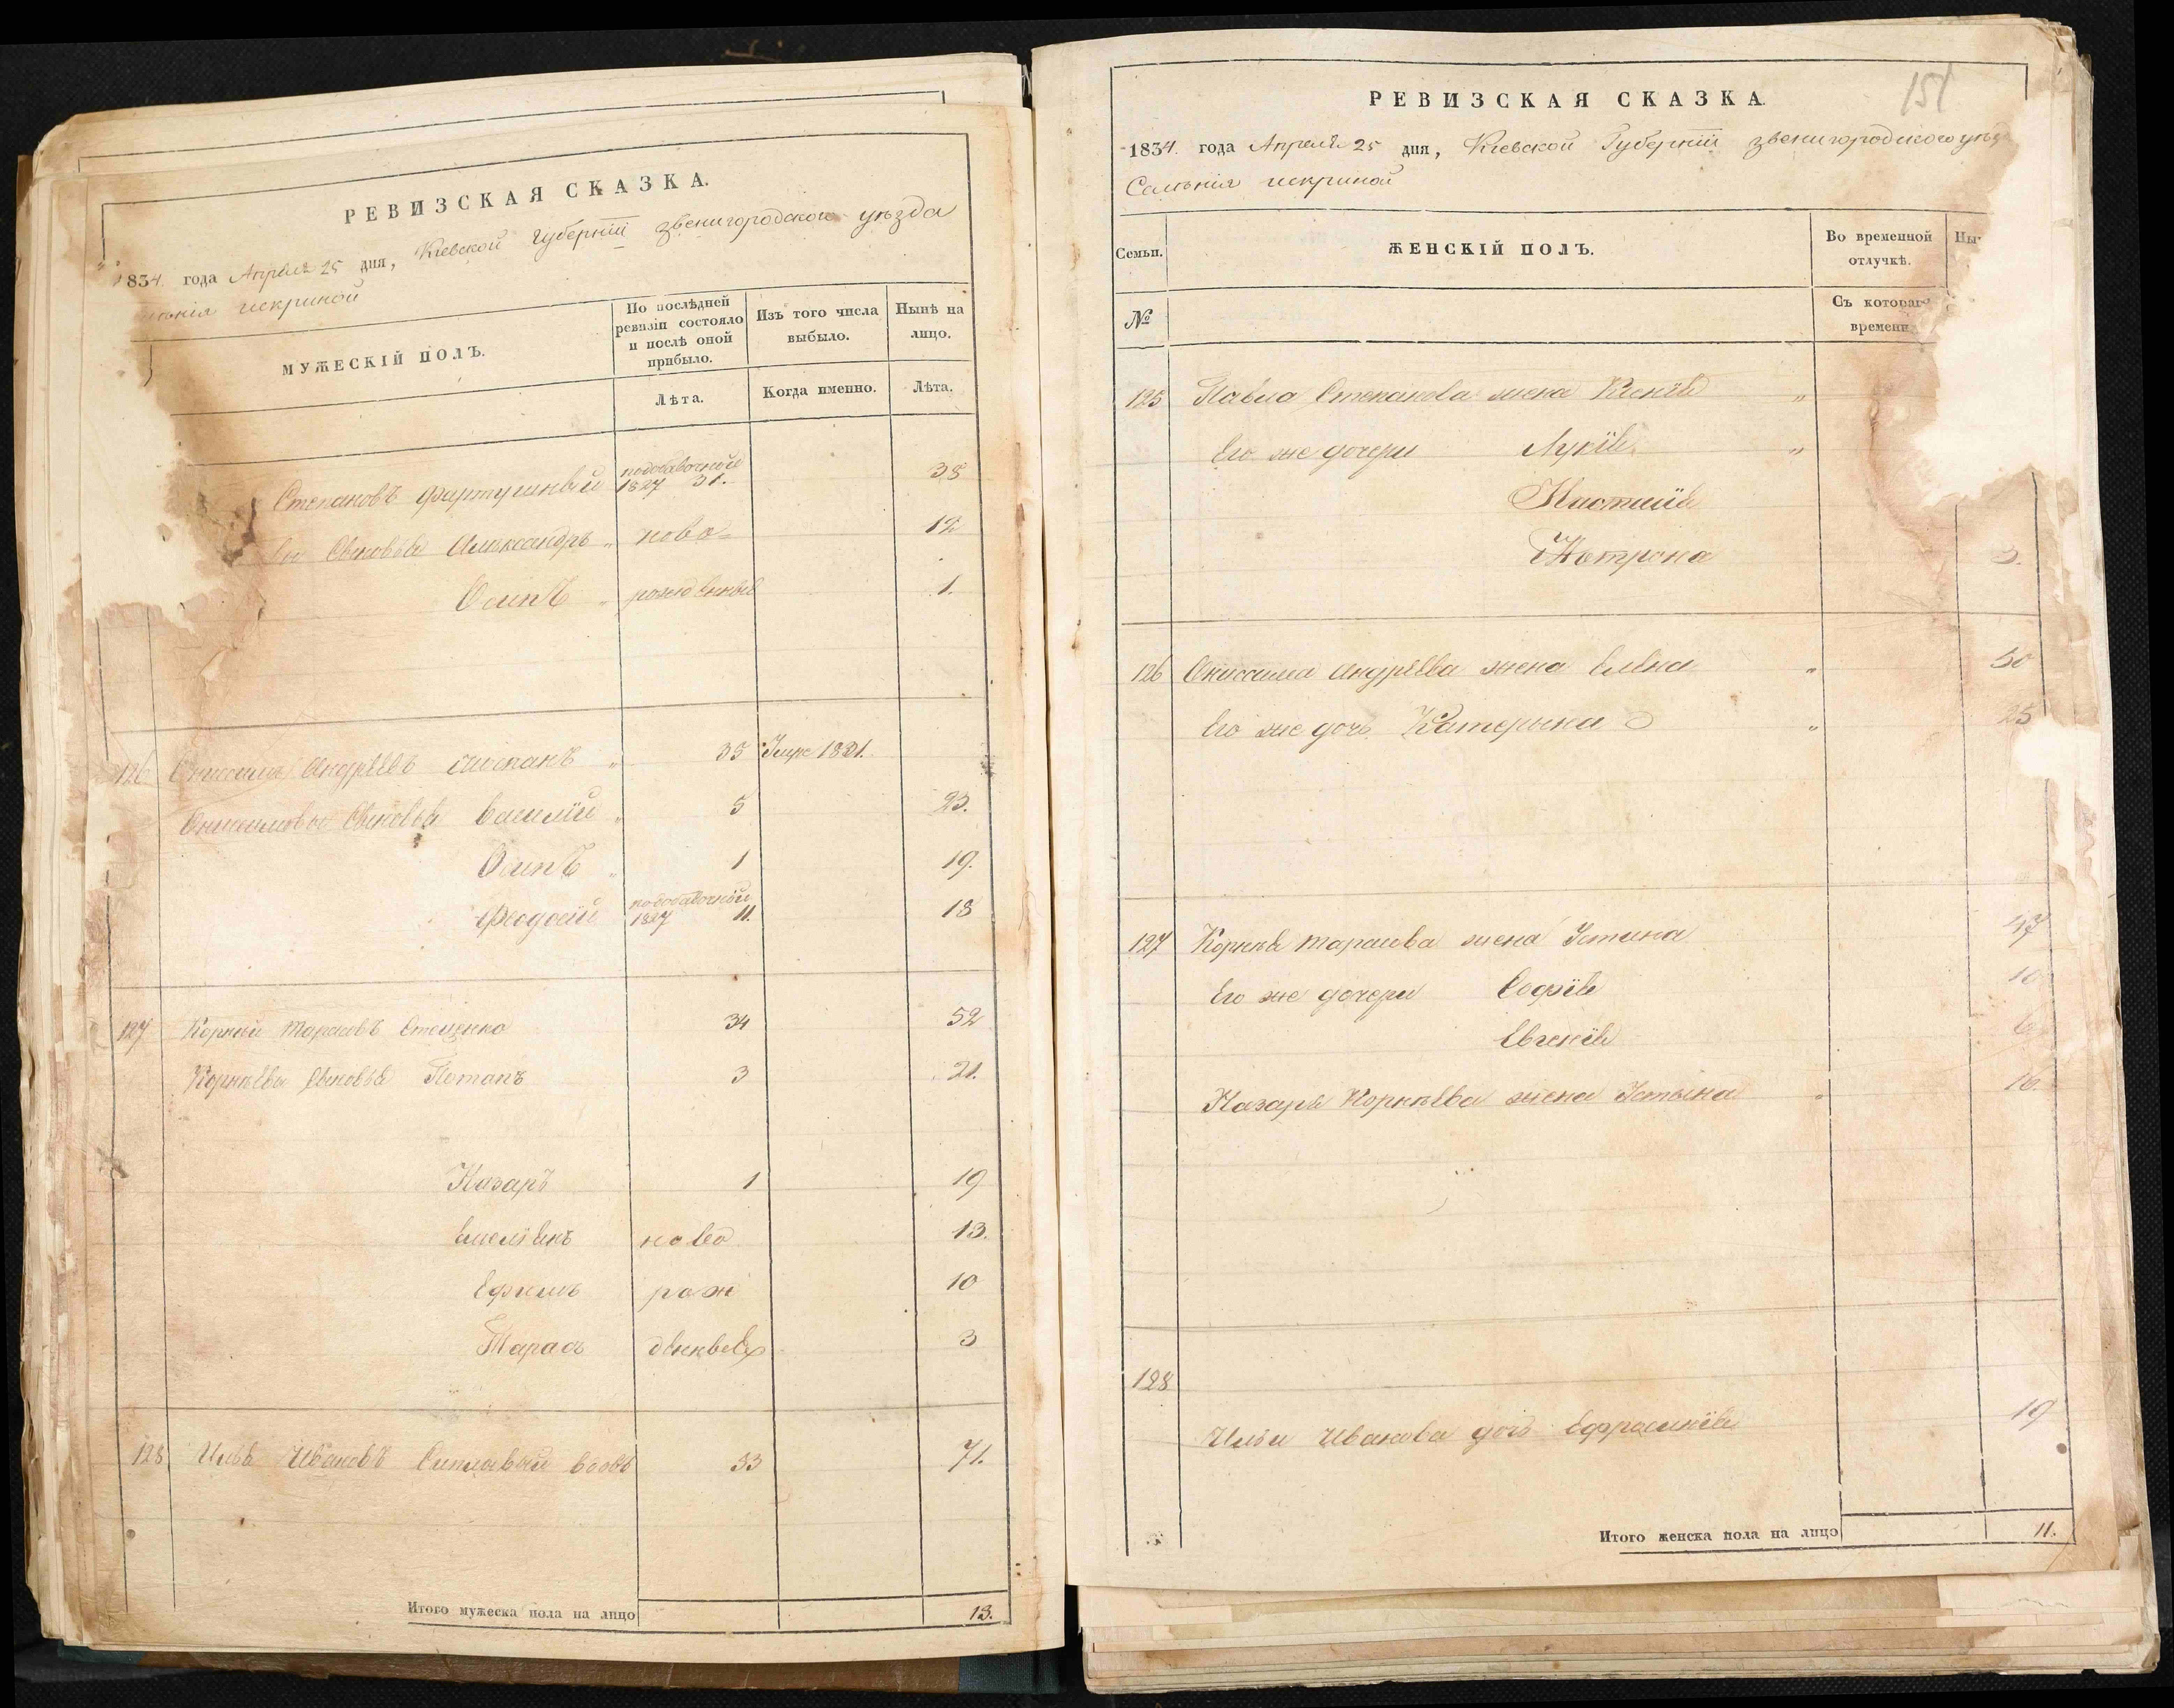 РЕВИЗСКАЯ СКАЗКА.
1834. года Апреля 25 дня, Кіевской Губерніи звенигородского уѣзда
искриной
МУЖЕСКІЙ ПОЛЪ.
По послѣдней ревизіи состояло и послѣ оной прибыло.
Изъ того числа выбыло.
Нынѣ на лицо.
Лѣта.
Когда именно.
Лѣта.
Степановъ Фартушный подобавочной 1827 31. 38
Его Сыновья Александръ „ ново= 12
Осипъ „ рожденные 1.
126 Онисимъ Андрѣевъ „ 35 Умре 1831.
Онисимовы Сыновья Василій „ 5 23.
Осипъ „ 1 19.
Феодосій подобавочной 1827 11. 18
127 Корній Тарасовъ Стеценко 34 52
Корнѣева Сыновья Потапъ 3 21.
Назаръ 1 19
Емельянъ ново 13.
Ефимъ рож 10
Тарасъ 3
128 Илья Ивановъ вдовъ 53 71.
Итого мужеска пола на лицо 13.
151
РЕВИЗСКАЯ СКАЗКА.
1834. года Апреля 25 дня, Кіевской Губерніи звенигородского уѣз
Селѣнія искриной
Семьи.
ЖЕНСКІЙ ПОЛЪ.
Во временной отлучкѣ.
Ны
№
Съ котораго времени
125 Павла Степанова жена Ксенія „
Его же дочери Лукія „
Настасія
Мотрона 3.
126 Онисима Андрѣева жена Елена „ 50
Его же дочь Катерына „ 25
127 Корнѣя тарасова жена Устина 47
Его же дочери Софія 10
Евгенія 6
Назара Корнѣева жена Устина „ 16.
128
Ильи Иванова дочь Ефросинія 19
Итого женска пола на лицо 11.